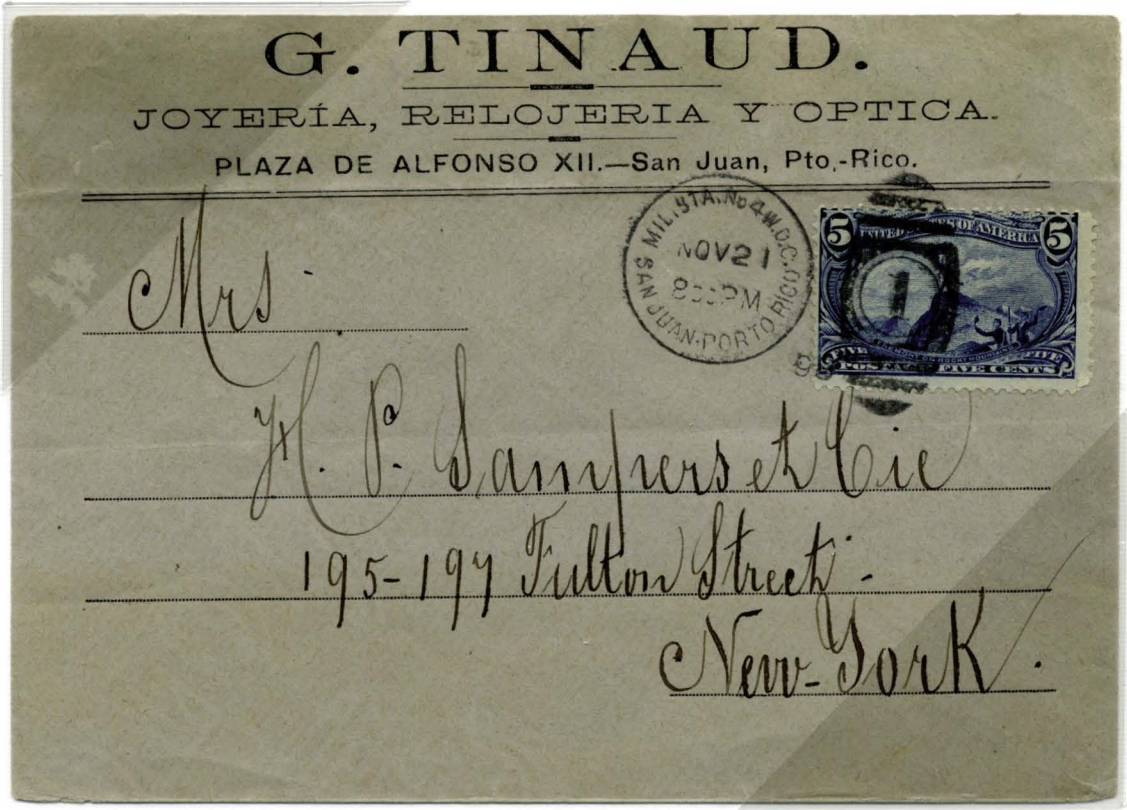 G. TINAUD.
JOYERÍA, RELOJERIA Y OPTICA.
PLAZA DE ALFONSO XII.—San Juan, Pto.-Rico.
MIL. STA. No 4 W.D.C.
NOV 21
8 PM
SAN JUAN-PORTO RICO
5 UNITED STATES OF AMERICA 5
1
FIVE FIVE
POSTAGE FIVE CENTS
Mrs
H. P. Sampers et Cie
195-197 Fulton Street-
New-York.